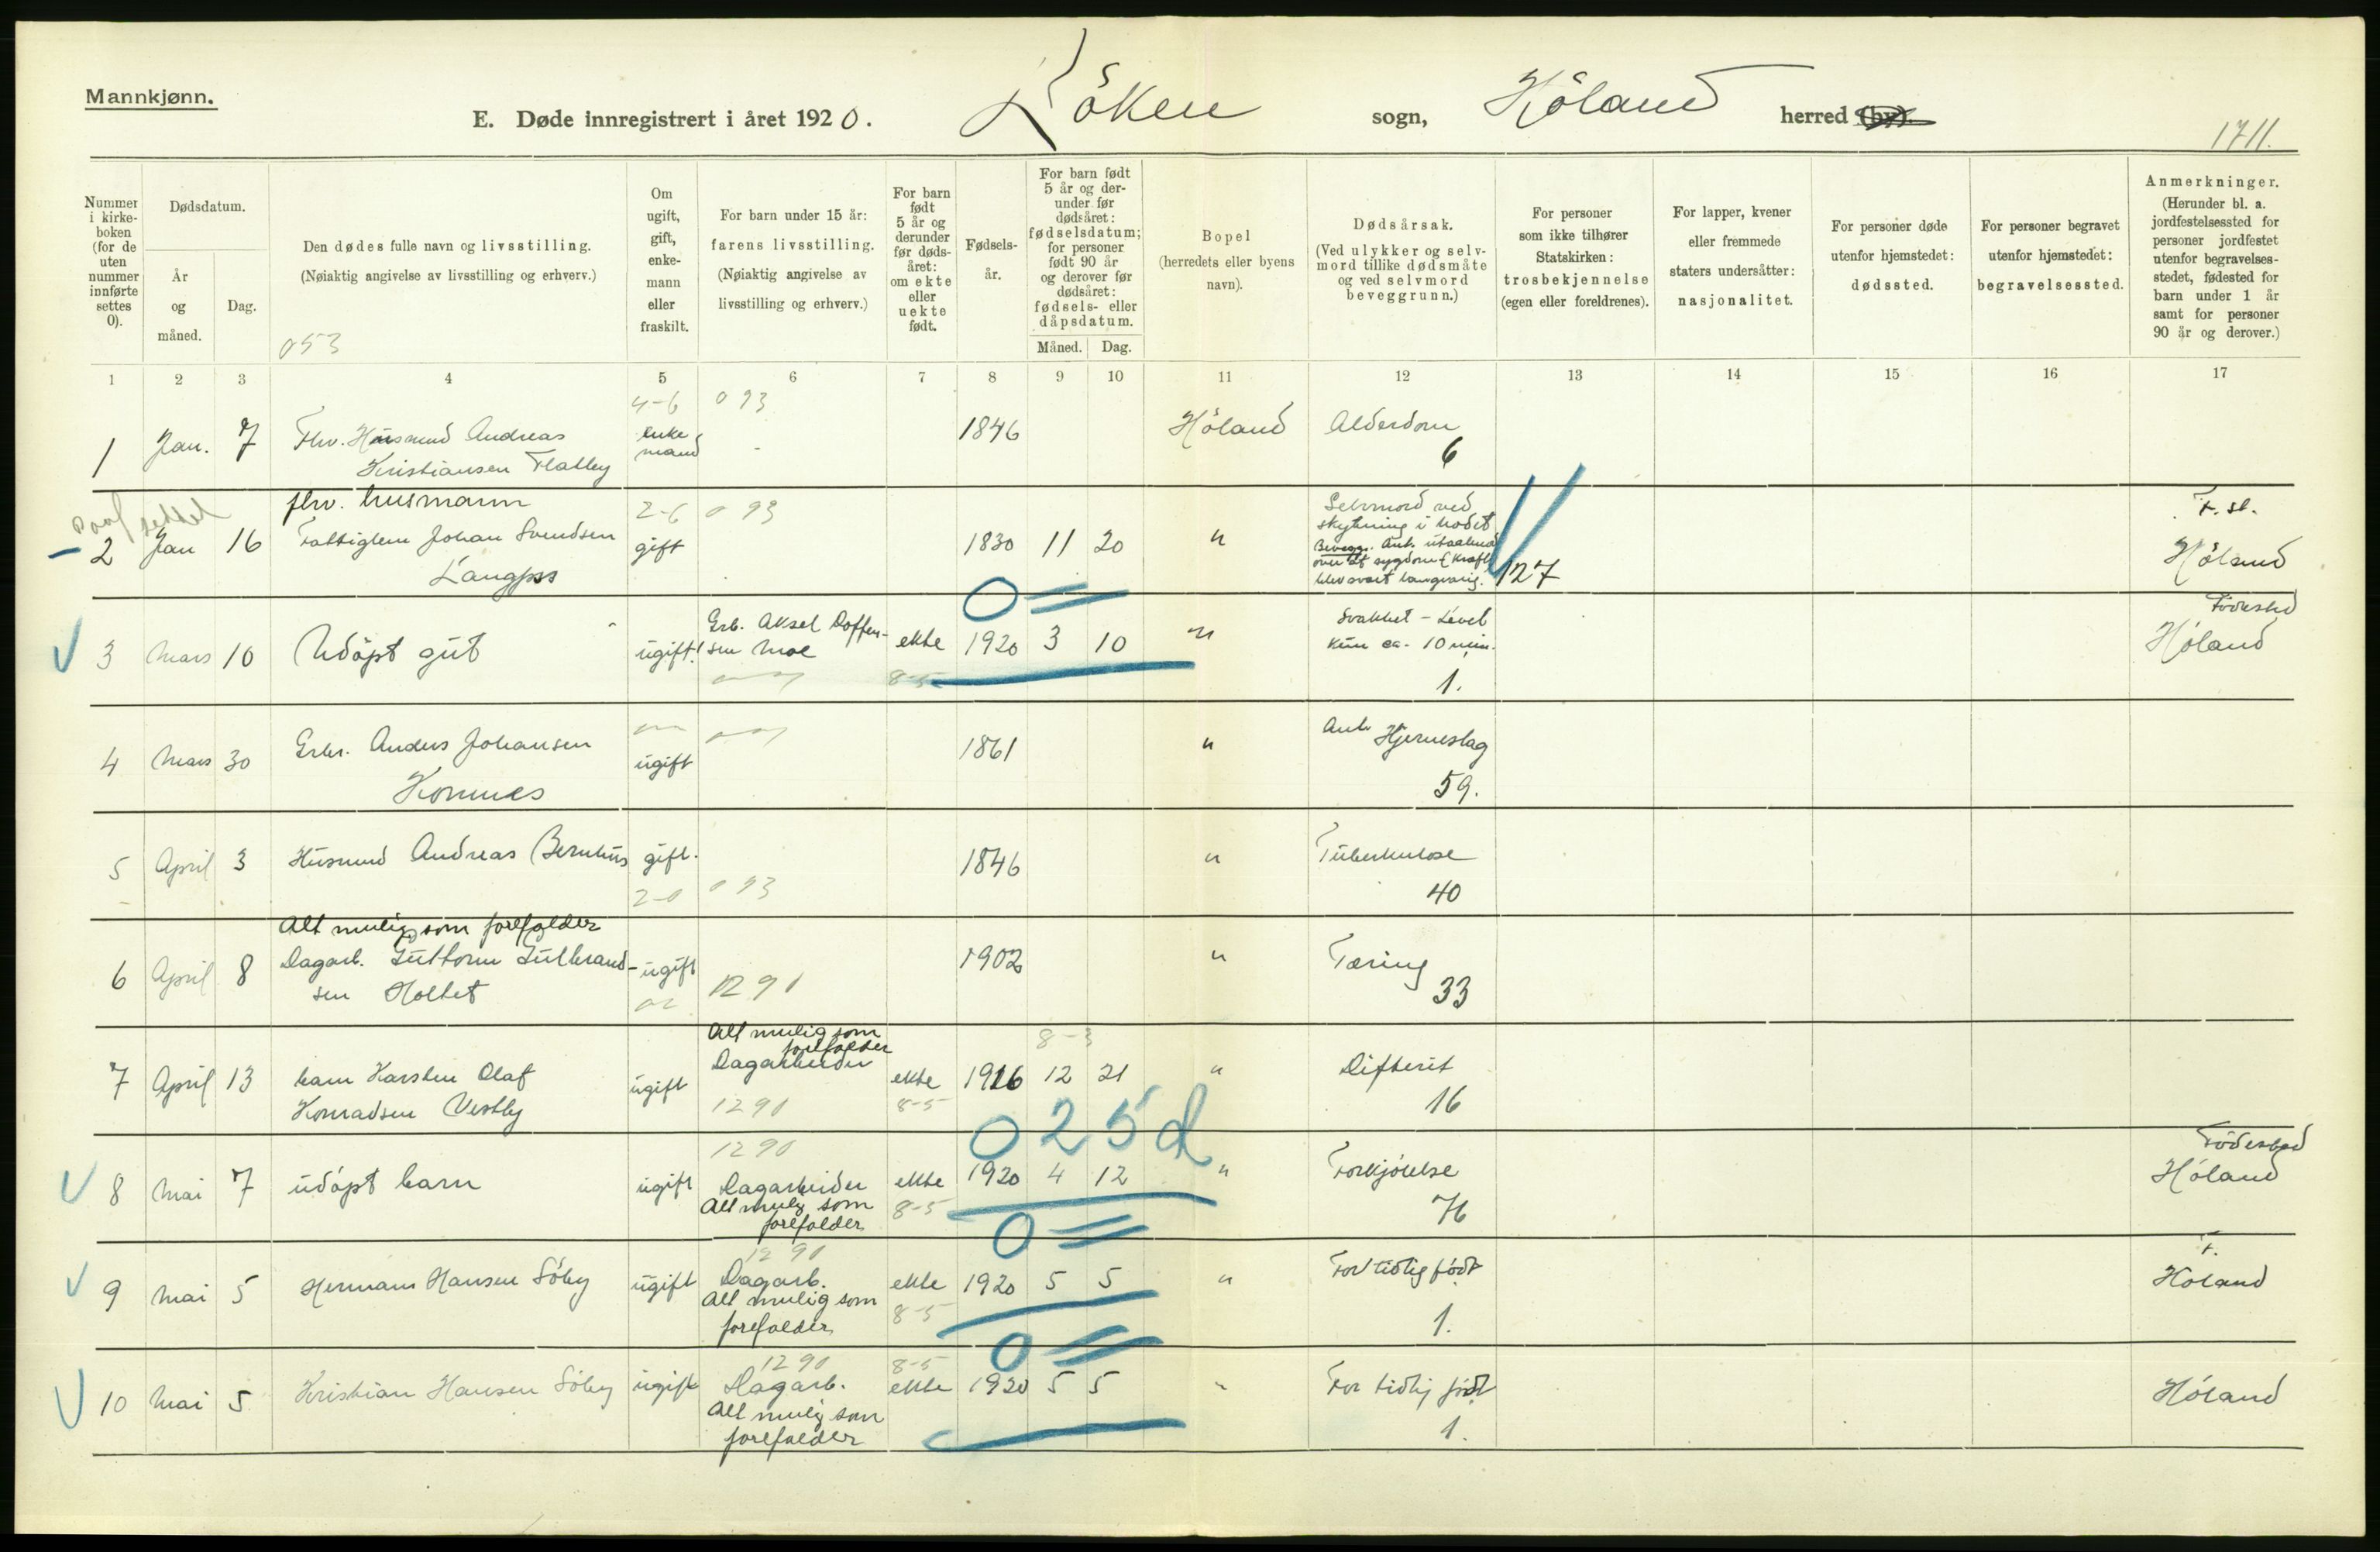 Mannkjønn.
E. Døde innregistrert i året 1920. Löken sogn, Höland herred (by).
1711.
Nummer i kirke-boken (for de uten nummer innførte settes 0).
Dødsdatum.
År og måned.
Dag.
Den dødes fulle navn og livsstilling.
(Nøiaktig angivelse av livsstilling og erhverv.)
053
Om ugift, gift, enke-mann eller fraskilt.
For barn under 15 år:
farens livsstilling.
(Nøiaktig angivelse av livsstilling og erhverv.)
For barn født 5 år og derunder før døds-året: om ekte eller uekte født.
Fødsels-år.
For barn født 5 år og der-under før dødsåret: fødselsdatum; for personer født 90 år og derover før dødsåret: fødsels- eller dåpsdatum.
Måned. Dag.
Bopel
(herredets eller byens navn).
Dødsårsak.
(Ved ulykker og selv-mord tillike dødsmåte og ved selvmord beveggrunn.)
For personer som ikke tilhører Statskirken: trosbekjennelse (egen eller foreldrenes).
For lapper, kvener eller fremmede staters undersåtter: nasjonalitet.
For personer døde utenfor hjemstedet: dødssted.
For personer begravet utenfor hjemstedet: begravelsessted.
Anmerkninger.
(Herunder bl. a. jordfestelsessted for personer jordfestet utenfor begravelses-stedet, fødested for barn under 1 år samt for personer 90 år og derover.)
1 2 3 4 5 6 7 8 9 10 11 12 13 14 15 16 17
4-6 093
1 Jan. 7 Fhv. Husmand Andreas enke 1846 Höland Alderdom
Kristiansen Flatby mand - 6
fhv. husmann 2-6 093 Selvmord ved F. st.
2 Jan 16 Fattiglem Johan Svendsen gift 1830 11 20 " skytning i hodet Höland
Langøss 127
0 =
3 Mars 10 Udöpt gut ugift! Grb. Aksel Doffen- ekte 1920 3 10 " Svakhet - Levet Födested
sen Moe 8-5 kun ca. 10 min. Höland
1.
4 Mars 30 Grbr. Anders Johansen ugift 1861 " Ant. Hjerneslag
Komnes 59.
5 April 3 Husmd Andreas Bernhus gift. 1846 " Tuberkulose
2-0 093 40
Alt mulig som forefalder
6 April 8 Dagarb. Guttorm Gulbrand- ugift 1902 " Tæring
sen Holtet 1291 33
Alt mulig som forefalder 8-3
7 April 13 barn Karsten Olaf ugift Dagarbeider ekte 1916 12 21 " Difterit
Konradsen Vestby 1291 8-5 16
1290 0 25 d
8 Mai 7 udöpt barn ugift Dagarbeider ekte 1920 4 12 " Forkjölelse Födested
Alt mulig som forefalder 8-5 76 Höland
1291 0 =
9 Mai 5 Hermann Hansen Söby ugift Dagarb. ekte 1920 5 5 " For tidlig födt F.
Alt mulig som forefalder 8-5 1. Höland
1290 8-5 0 =
10 Mai 5 Kristian Hansen Söby ugift Dagarb. ekte 1920 5 5 " For tidlig födt Höland
Alt mulig som forefalder 1.